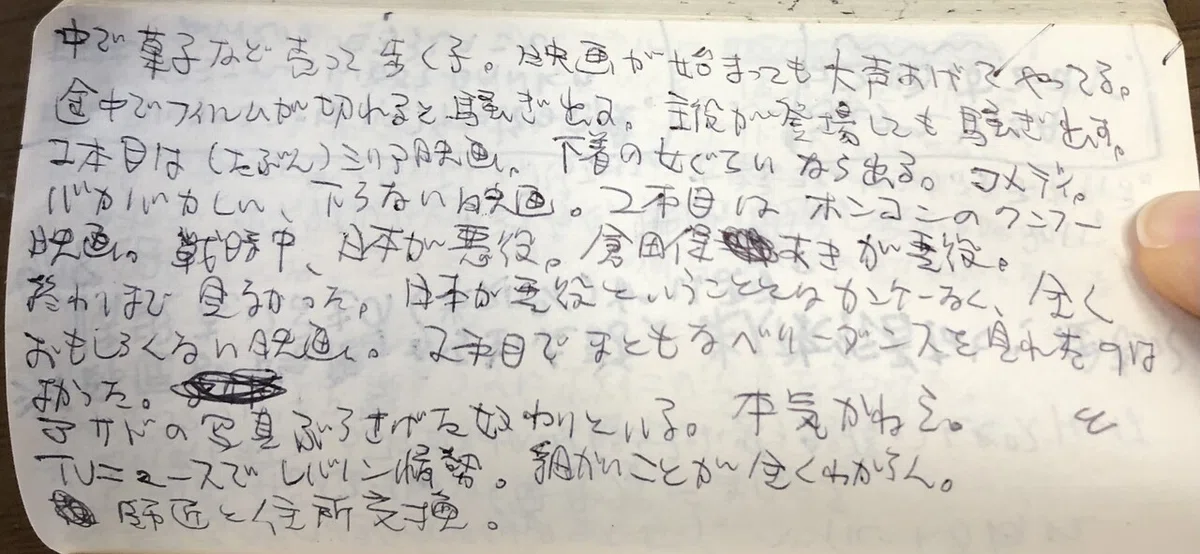 中で菓子など売って歩く子。映画が始まっても大声あげてやってる。
途中でフィルムが切れると騒ぎ出す。主役が登場しても騒ぎ出す。
1本目は(たぶん)シリア映画。下着の女ぐらいなら出る。コメディ。
バカバカしい、下らない映画。2本目はホンコンのクンフー
映画。戦時中、日本が悪役。倉田保あきが悪役。
終わりまで見なかった。日本が悪役ということとはカンケーなく、全く
おもしろくない映画。2本目でまともなベリーダンスを見れたのは
よかった。
アサドの写真ぶらさげた奴わりといる。本気かねえ。 と
TVニュースでレバノン情勢。細かいことが全くわからん。
師匠と住所交換。